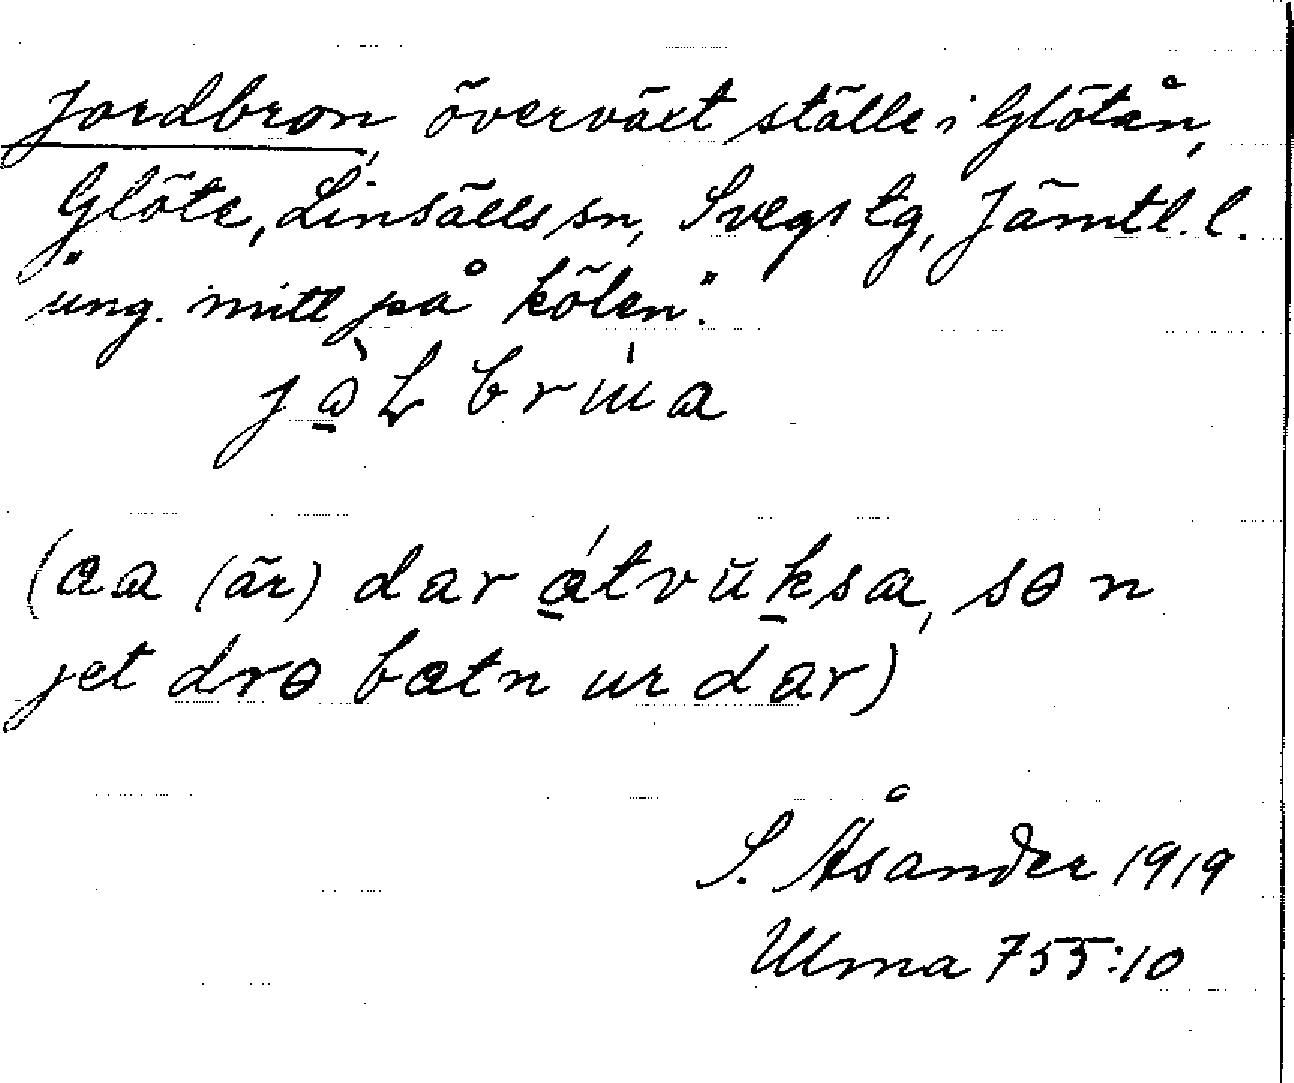 Jordbron, överväxt ställe i Glötån,
Glöte, Linsälls sn, Svegs tg, Jämtl. l.
"ung. mitt på kölen".
jàL brɯ́a
(æa (är) dar átvŭksa, søn
jet drɵ batn ur dar)
S. Åsander 1919
Ulma 755:10